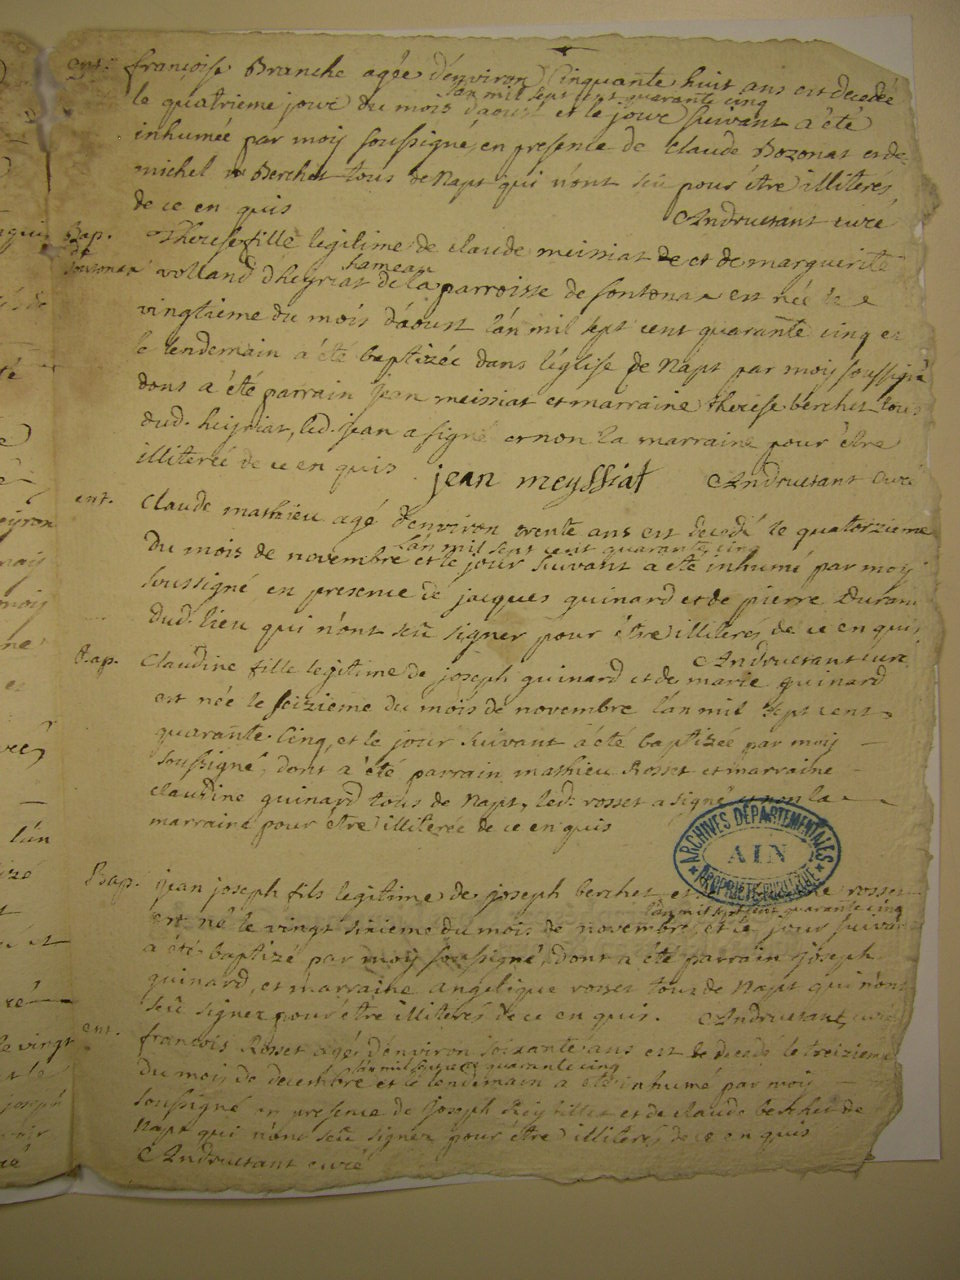 ent. françoise Branche agée d'environ Cinquante huit ans est decedée
l'an mil sept cent quarante cinq
le quatrieme jour du mois d'aoust et le jour suivant a été
inhumée par moy soussigné, en presence de Claude Bozonat et de
michel Berchet tous de Napt qui n'ont sçû pour être illiterés
de ce en quis Andruetant curé
Bap. Therese fille legitime de claude meissiat et de marguerite
hameau
volland d'heyriat de la parroisse de sonsonax est née le
vingtieme du mois d'aoust l'an mil sept cent quarante cinq et
le lendemain a été baptizée dans l'église de Napt par moy soussigné
dont a été parrain jean meissiat et marraine therese berchet tous
dud. heyriat, led. jean a signé et non la marraine pour être
illiterée de ce en quis jean meyssiat Andruetant curé
ent. Claude mathieu agé d'environ trente ans est decedé le quatorzieme
l'an mil sept cent quarante cinq
du mois de novembre et le jour suivant a été inhumé par moy
soussigné en presence de jacques guinard et de pierre Durand
dud. lieu qui n'ont sçû signer pour être illiterés de ce en quis
Andruetant curé
Bap. Claudine fille legitime de joseph guinard et de marie guinard
est née le seizieme du mois de novembre l'an mil sept cent
quarante cinq, et le jour suivant a été baptizée par moy
soussigné, dont a été parrain mathieu Rosset et marraine
claudine guinard tous de Napt, led. rosset a signé et non la
marraine pour être illiterée de ce en quis
ARCHIVES DÉPARTEMENTALES
AIN
PROPRIÉTÉ PUBLIQUE
Bap. jean joseph fils legitime de joseph berchet et rosset
l'an mil sept cent quarante cinq
est né le vingt sixieme du mois de novembre et le jour suivant
a été baptizé par moy soussigné, dont a été parrain joseph
guinard, et marraine angelique rosset tous de Napt qui n'ont
sçû signer pour être illiterés de ce en quis. Andruetant curé
ent. françois Rosset agé d'environ soixante ans est decedé le treizieme
l'an mil sept cent quarante cinq
du mois de decembre et le lendemain a été inhumé par moy
soussigné en presence de joseph et de claude berchet de
Napt qui n'ont sçû signer pour être illiterés de ce en quis
Andruetant curé